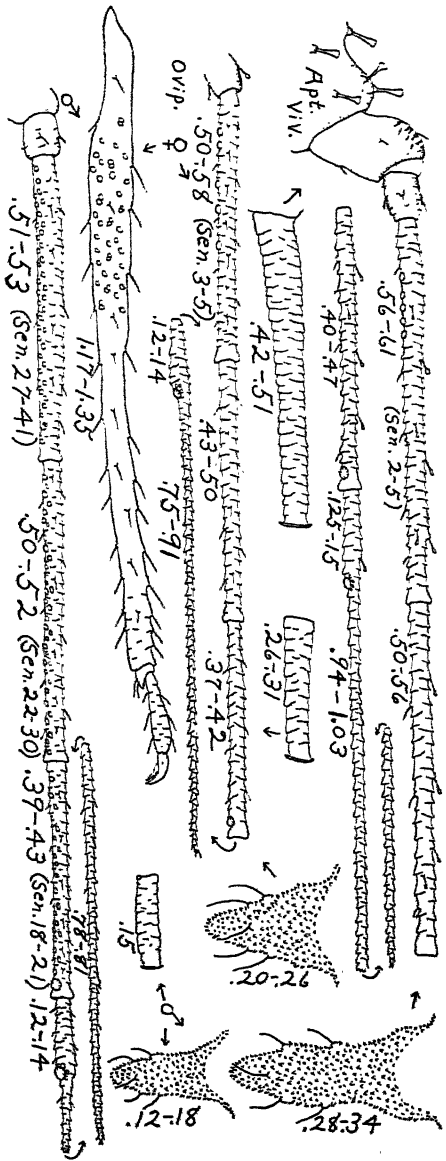 Apt.
Viv.
.56-.61 (Sen. 2-5) .50-.56
.40-.47 .125-.15 .94-1.03
.42-.51 .26-.31
.28-.34
Ovip. ♀
.50-.58 (Sen. 3-5) .43-.50 .37-.42
.12-.14 .75-.91
.20-.26
1.17-1.35
.15
♂
.12-.18
♂
.51-.53 (Sen. 27-41) .50-.52 (Sen. 22-30) .39-.43 (Sen. 18-21) .12-.14
.78-.81